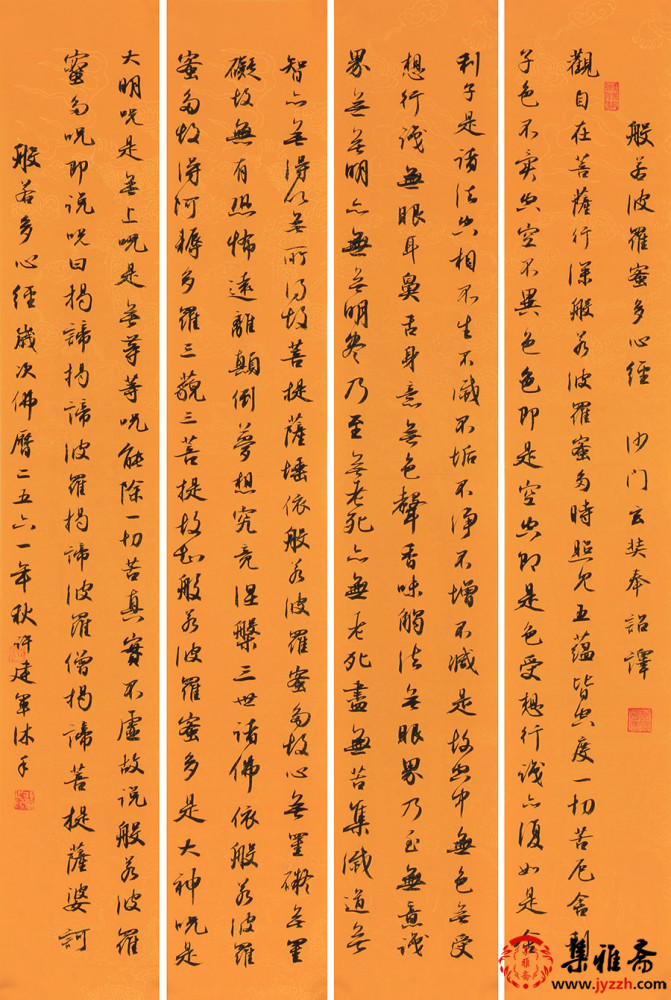 般若波羅蜜多心經 沙门玄奘奉詔譯
觀自在菩薩行深般若波羅蜜多時照見五蕴皆空度一切苦厄舍利
子色不異空空不異色色即是空空即是色受想行識亦復如是舍
利子是诸法空相不生不滅不垢不淨不增不減是故空中無色无受
想行識無眼耳鼻舌身意无色聲香味觸法无眼界乃至無意識
界无无明亦無无明盡乃至无老死亦無老死盡無苦集滅道无
智亦无得以无所得故菩提薩埵依般若波羅蜜多故心无罣礙无罣
礙故無有恐怖遠離顛倒夢想究竟涅槃三世诸佛依般若波羅
蜜多故得阿耨多羅三藐三菩提故知般若波羅蜜多是大神咒是
大明咒是无上咒是无等等咒能除一切苦真實不虛故说般若波羅
蜜多咒即说咒曰揭諦揭諦波羅揭諦波羅僧揭諦菩提薩婆訶
般若多心經歲次佛曆二五六一年秋许建軍沐手
集雅斋
www.jyzzh.com